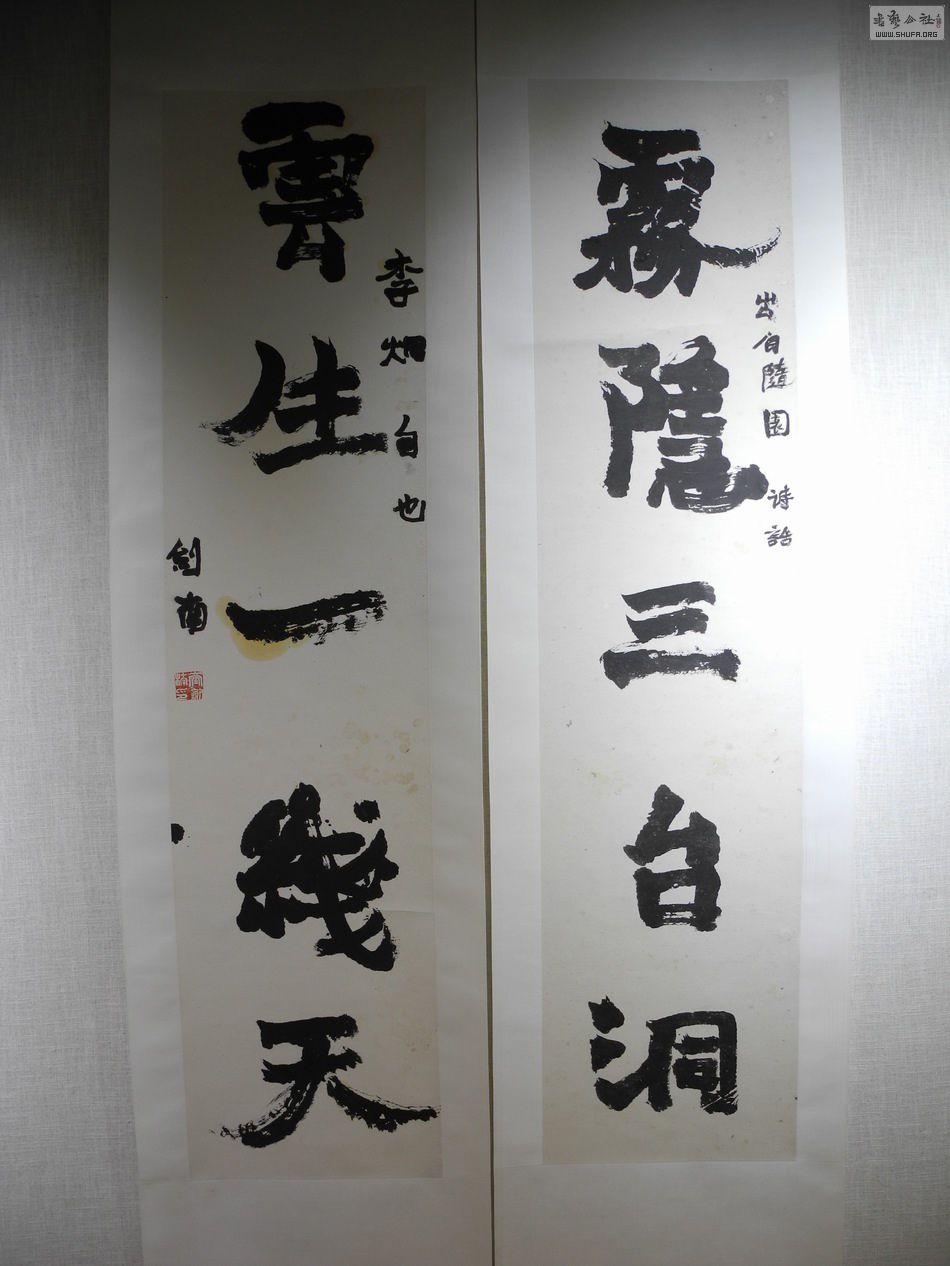 霧隱三台洞
出句隨園詩話
雲生一綫天
李炯句也
劍南
書藝公社
WWW.SHUFA.ORG